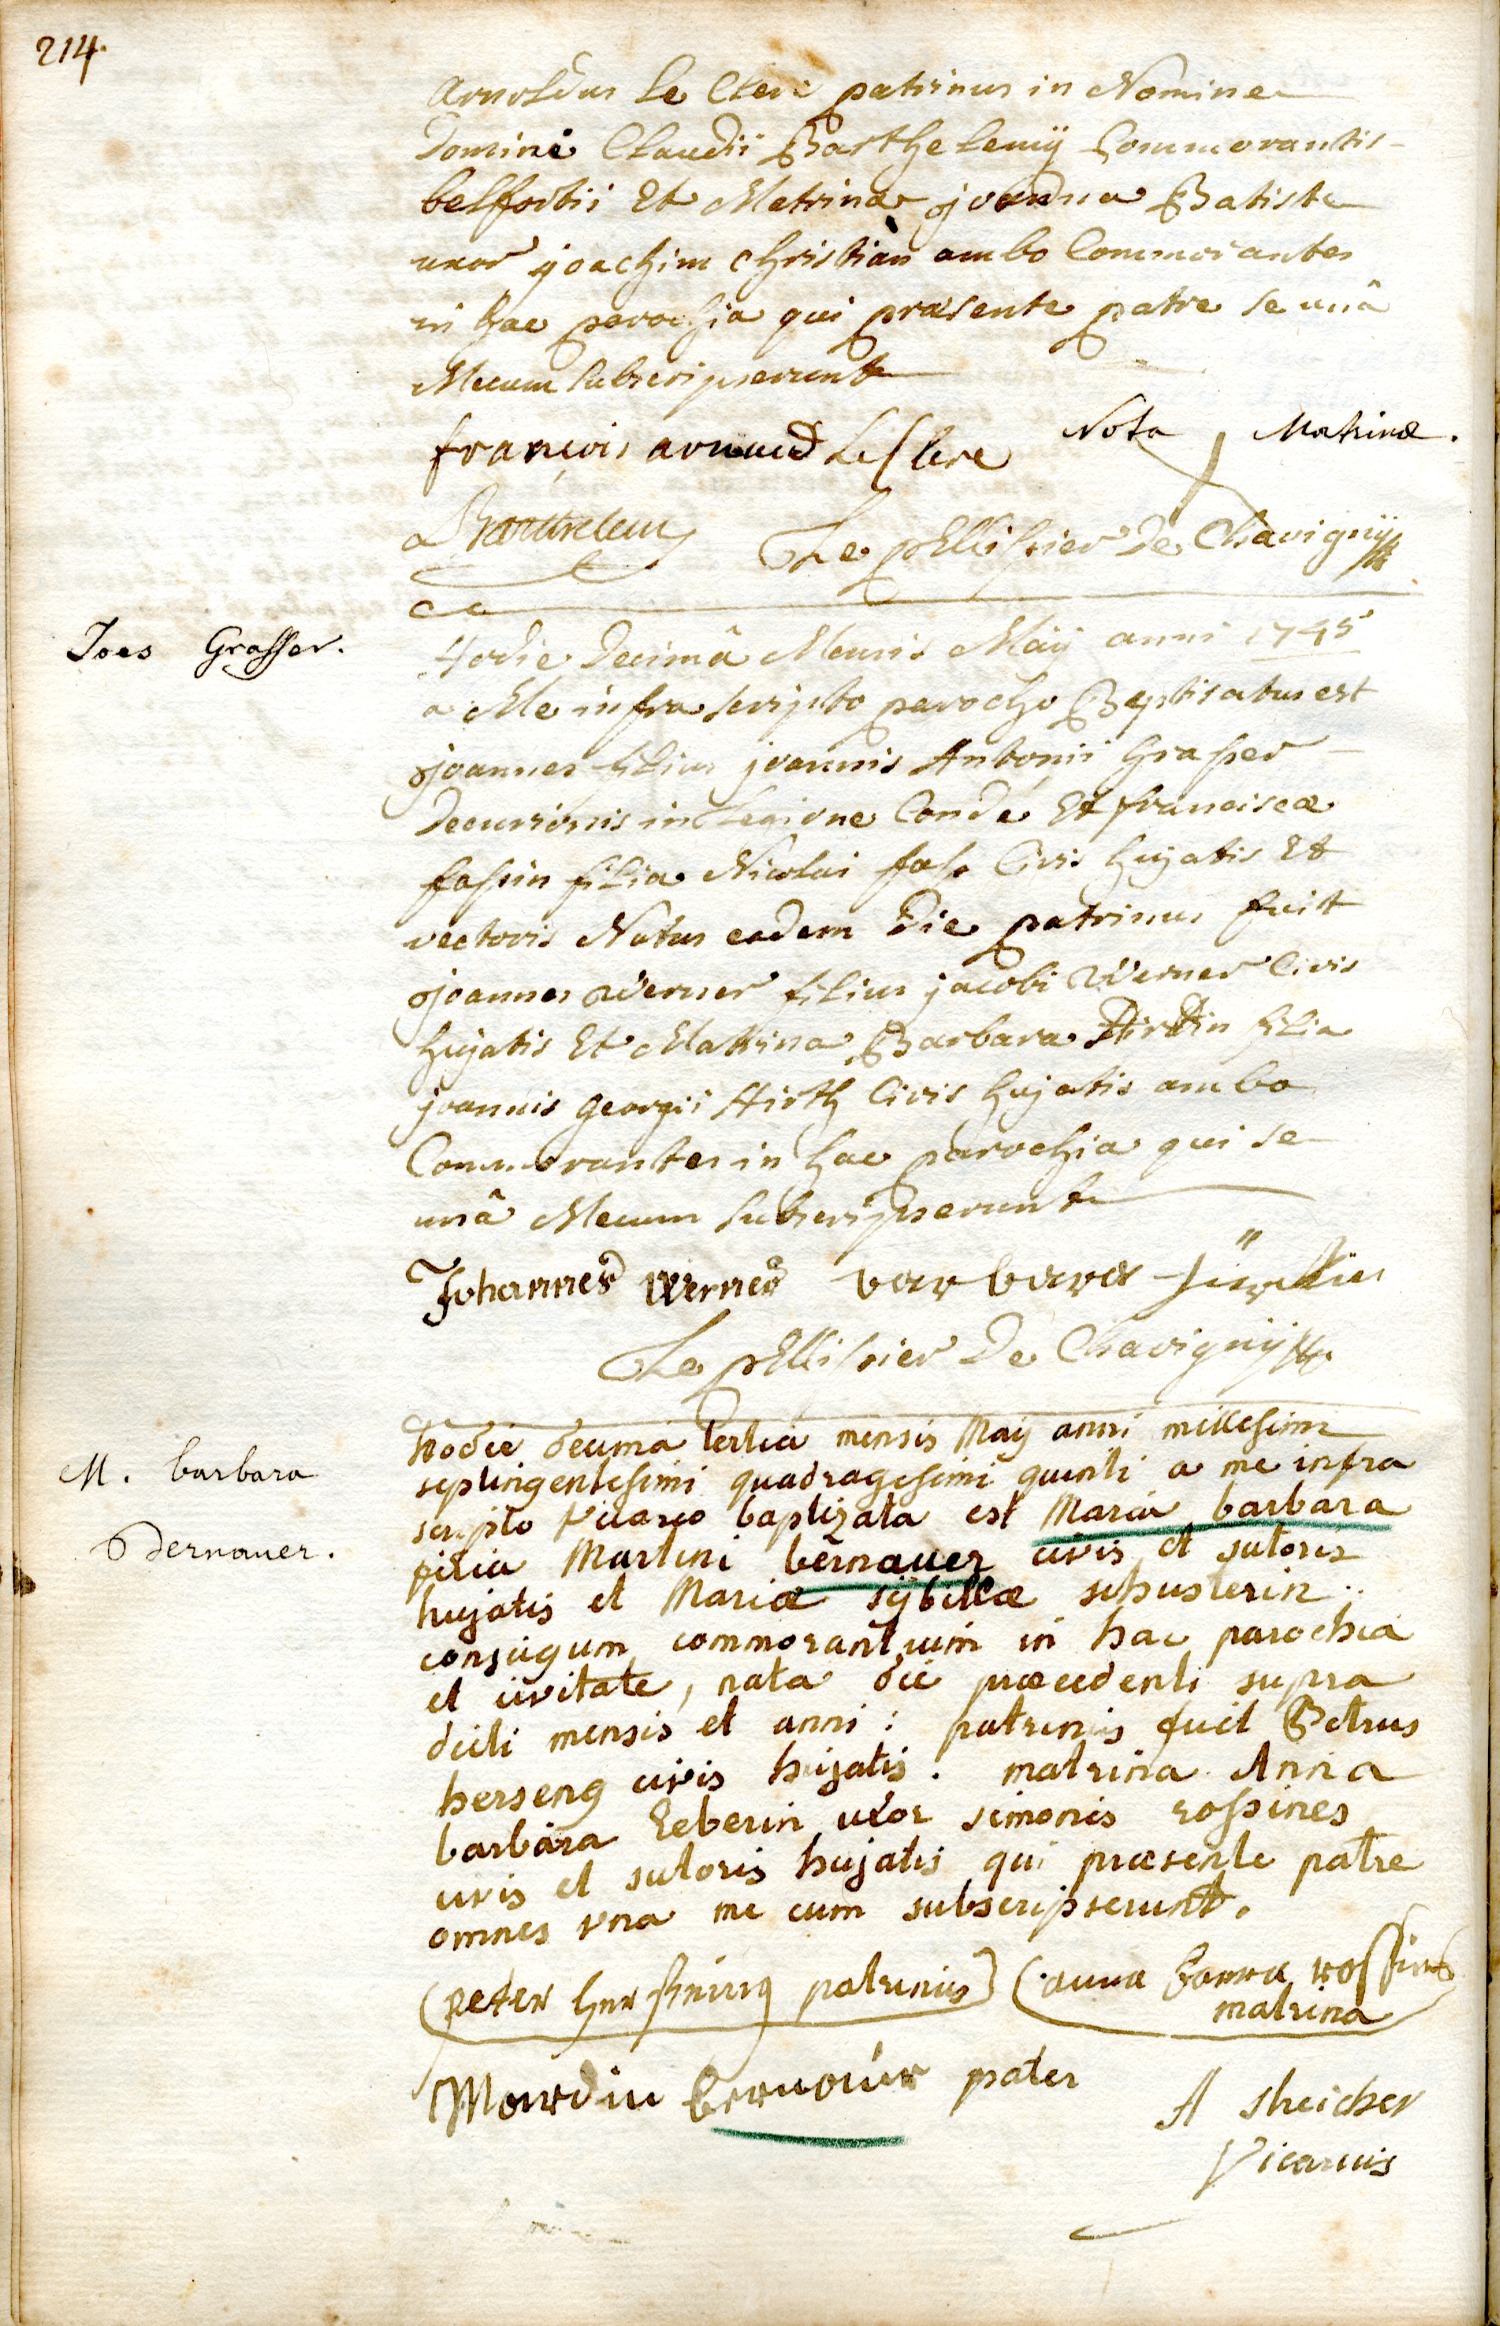 214.
Arnoldus Le Clerc patrinus in Nomine
Domini Claudii Barthelemij Commorantis
belfortii Et Matrina joanna Batiste
uxor joachim christian ambo Commorantes
in hac parochia qui praesente patre se unâ
Mecum subscripserunt
françois arnaud LeClere Nota Matrinæ.
Barthelemy Le pellissier De Chavignij
Joes Grasser.
Hodie Decimâ Mensis Maij anni 1745
a Me infra scripto parocho Baptisatus est
joannes filius joannis Antonii Grasser
Decurionis in Legione Condé Et franciscæ
fassin filia Nicolai fass Civis hujatis Et
vectoris Natus eadem Die patrinus fuit
joannes Werner filius jacobi Werner Civis
hujatis Et Matrina Barbara Hirtin filia
joannis Georgii Hirth Civis hujatis ambo
Commorantes in hac parochia qui se
unâ Mecum subscripserunt
Johannes Werner barbara hirttin
Le pellissier De Chavignij
M. barbara
Bernauer.
hodie decima tertia mensis Maij anni millesimi
septingentesimi quadragesimi quinti a me infra
scripto vicario baptizata est Maria barbara
filia Martini bernauer civis et sutoris
hujatis et Mariæ sijbillæ schusterin
conjugum commorantium in hac parochia
et civitate, nata die præcedenti supra
dicti mensis et anni : patrinus fuit Petrus
herseng civis hujatis. matrina Anna
barbara Eeberin uxor simonis rossines
civis et sutoris hujatis qui præsente patre
omnes vna me cum subscripserunt.
(peter patrinus) (anna rossin
matrina
Mardin bernauer pater
A sheicher
Vicarius